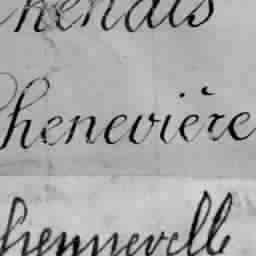 henais
henevière
hennevelle